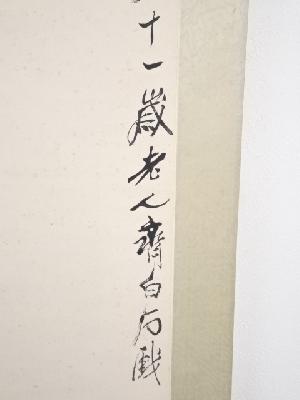 十一歲老人齊白石戲